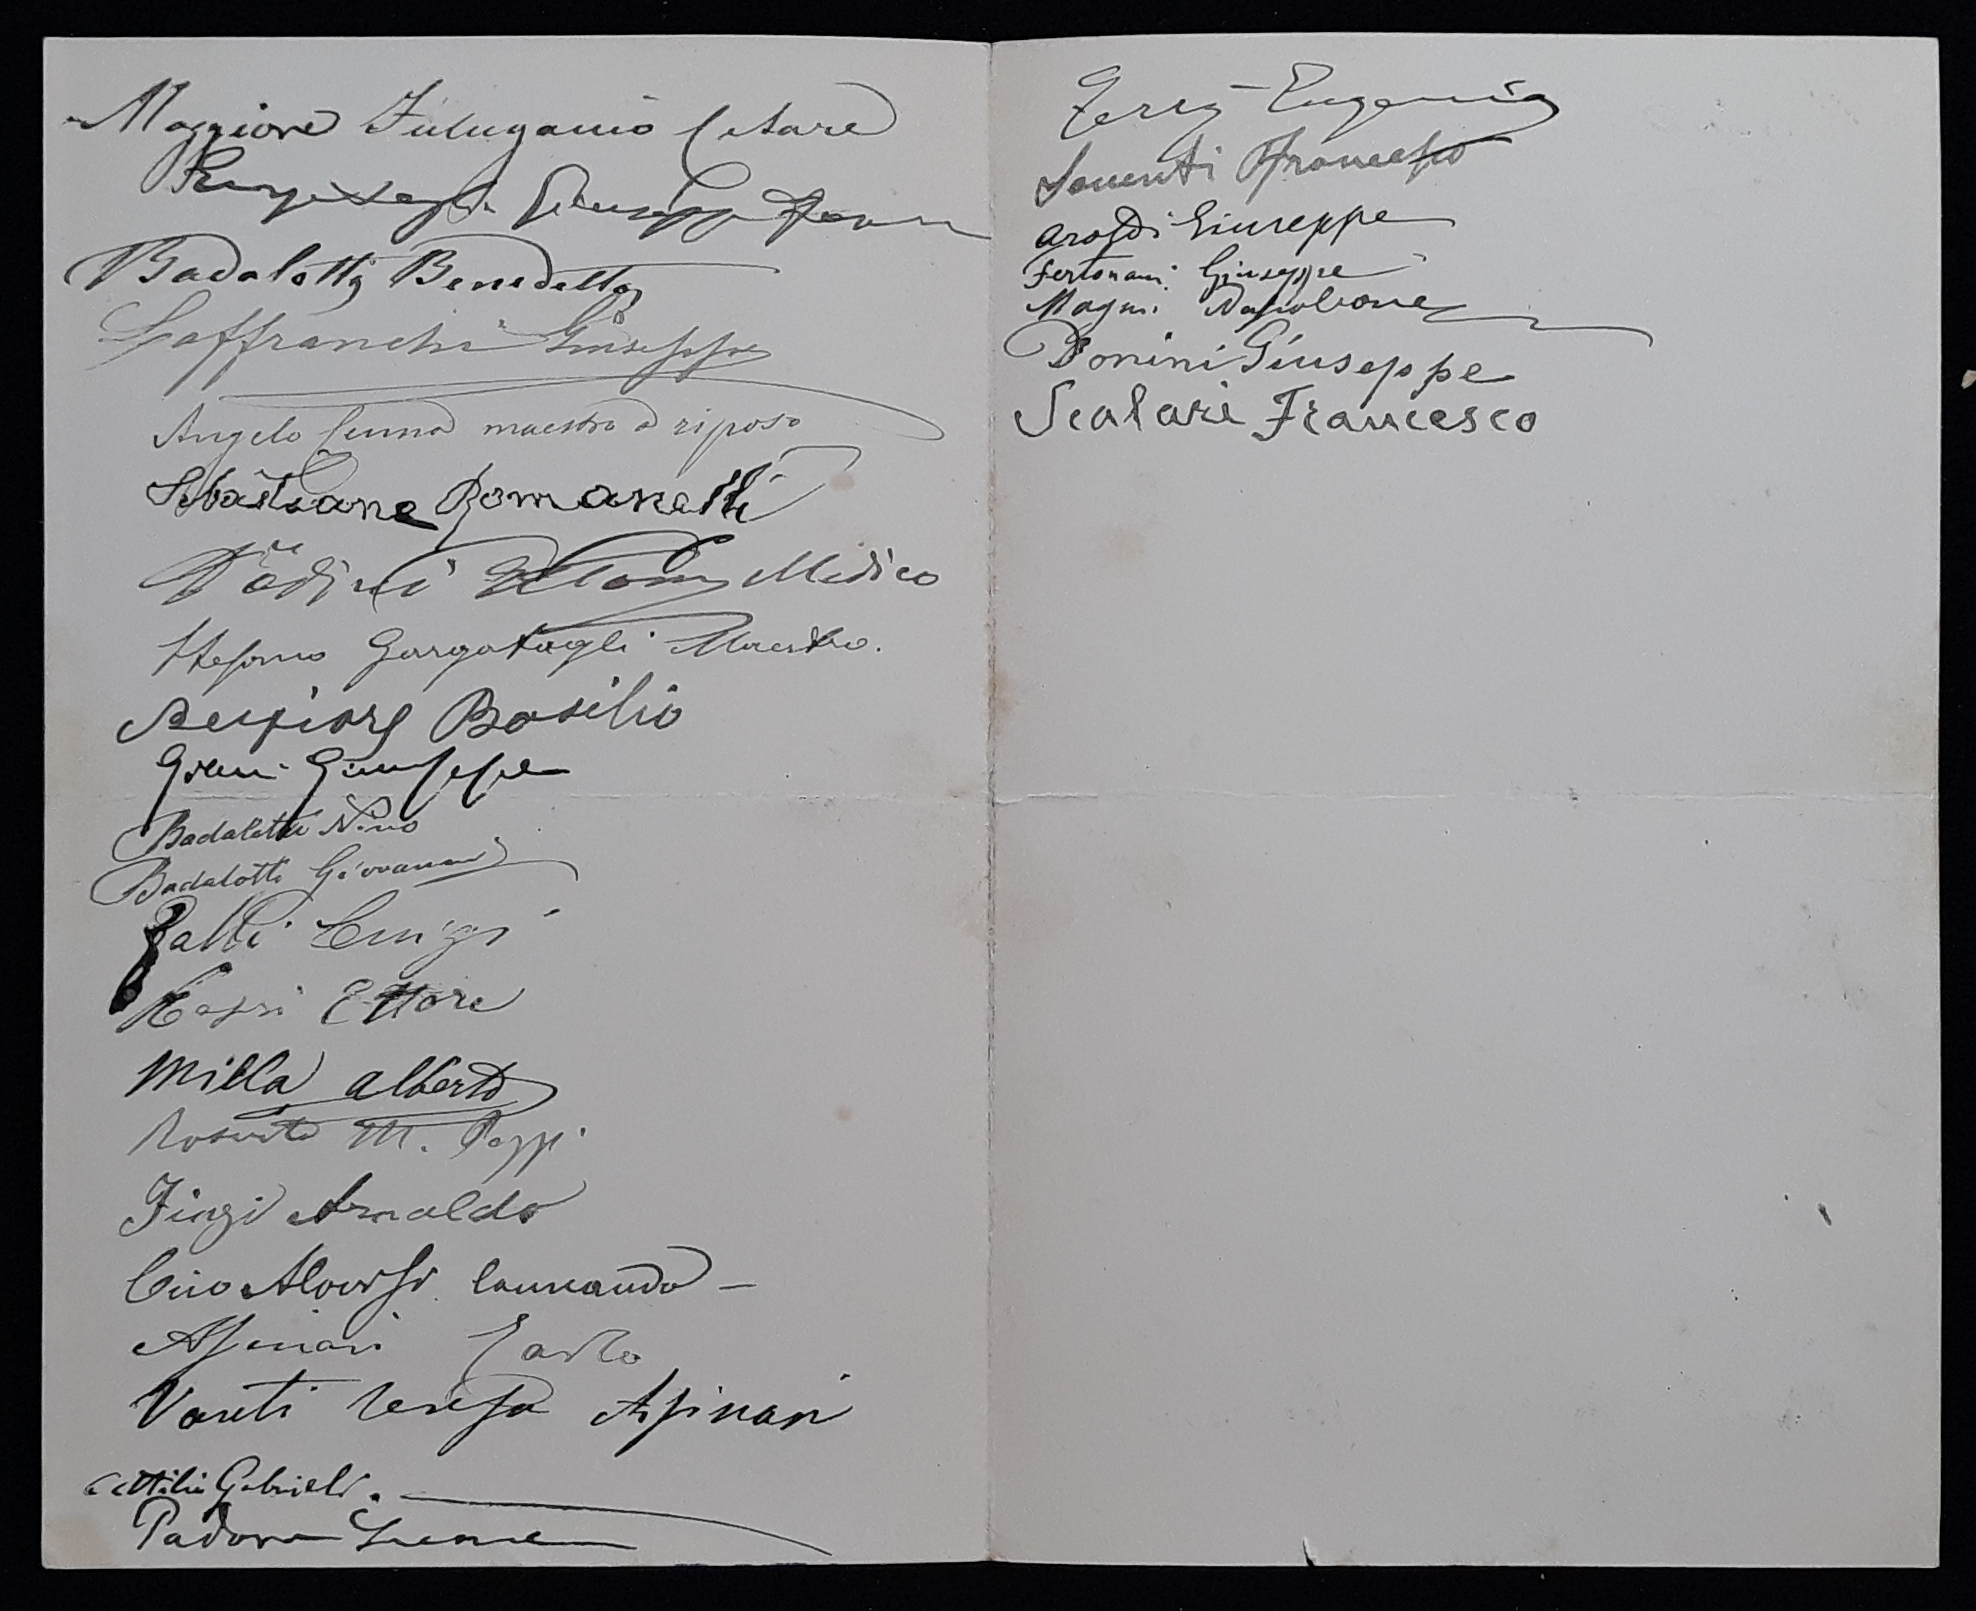 Maggiore Cesare
Giuseppe
Badalotti Benedetto
Loffranchi Giuseppe
Angelo Cenna maestro a riposo
Sebastiano Romanelli
Medico
Stefano Gargatagli Maestro.
Belfiore Basilio
Giuseppe
Badalotti Nino
Badalotti Giovanni
Galli Luigi
Rossi Ettore
Milla Alberto
M. Pezzi
Finzi Arnaldo
Ciro Aloisi laureando
Asinari Carlo
Vareti Teresa Asinari
Attilio Gabrieli.
Padova
Terzi Eugenio
Francesco
Araldi Giuseppe
Fertonani Giuseppe
Magni Napoleone
Donini Giuseppe
Scalari Francesco